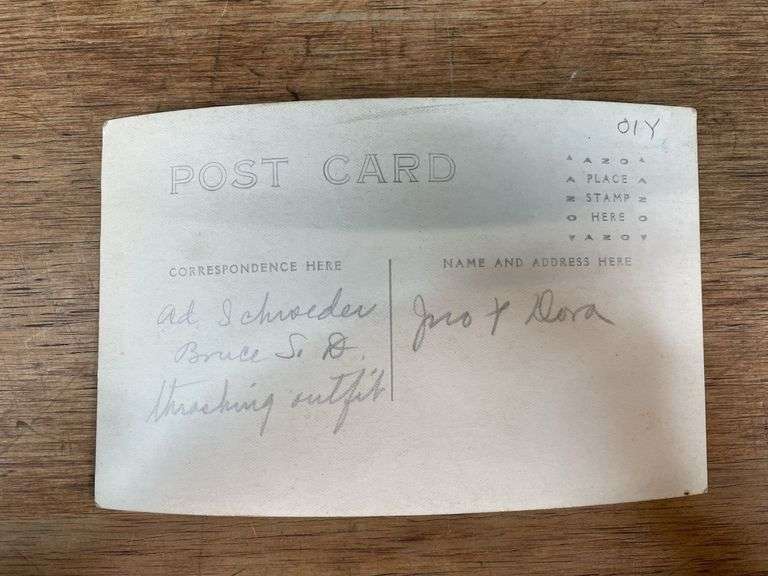 OIY
POST CARD
AZO
PLACE
STAMP
HERE
AZO
CORRESPONDENCE HERE
NAME AND ADDRESS HERE
Ad. Schroeder
Bruce S. D.
thrashing outfit
Jno & Dora